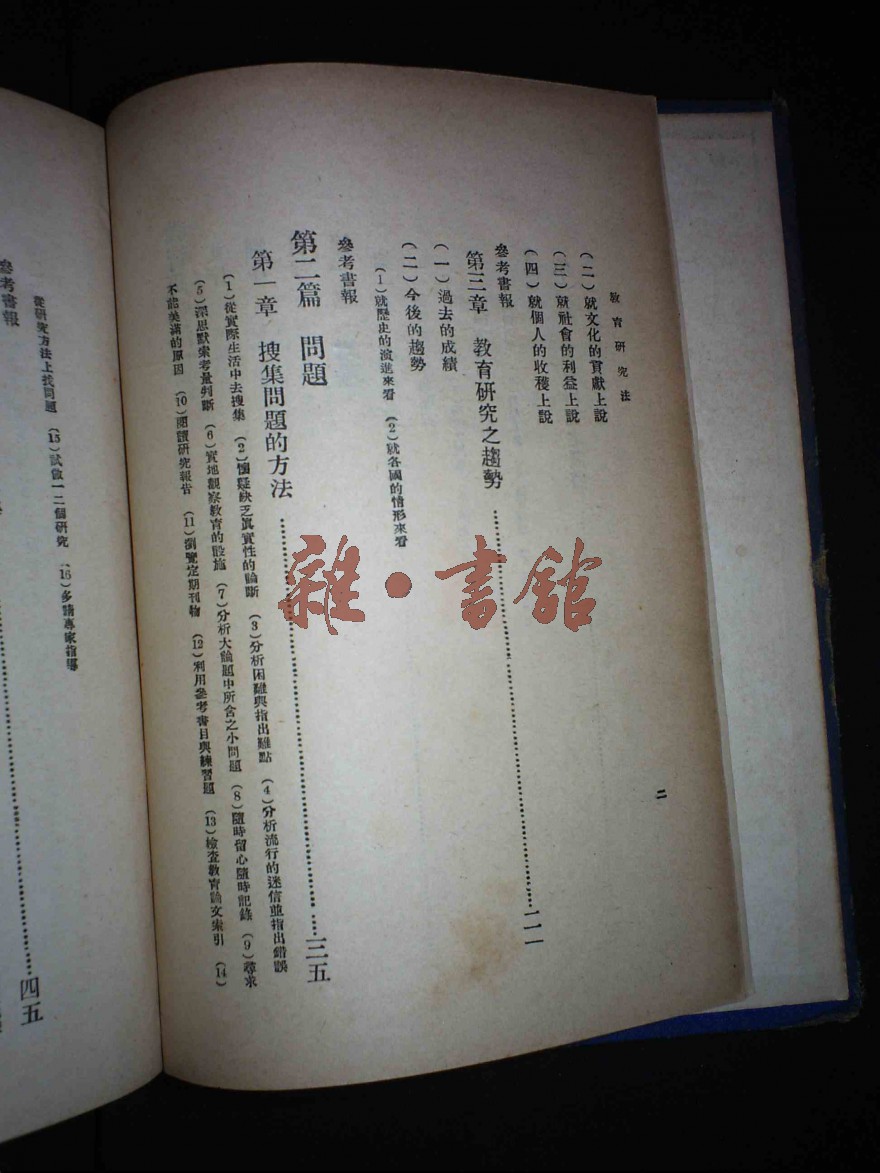 教育研究法
(二)就文化的貢獻上說
(三)就社會的利益上說
(四)就個人的收穫上說
參考書報
第三章 教育研究之趨勢……二一
(一)過去的成績
(二)今後的趨勢
(1)就歷史的演進來看 (2)就各國的情形來看
參考書報
第二篇 問題
第一章 搜集問題的方法……三五
(1)從實際生活中去搜集 (2)懷疑缺乏眞實性的論斷 (3)分析困難與指出難點 (4)分析流行的迷信並指出錯誤
(5)深思默索考量判斷 (6)實地觀察教育的設施 (7)分析大論題中所含之小問題 (8)隨時留心隨時記錄 (9)尋求
不能美滿的原因 (10)閱讀研究報告 (11)瀏覽定期刊物 (12)利用參考書目與練習題 (13)檢查教育論文索引 (14)
二
從研究方法上找問題 (15)試做一二個研究 (16)多請專家指導
參考書報
四五
雜·書館